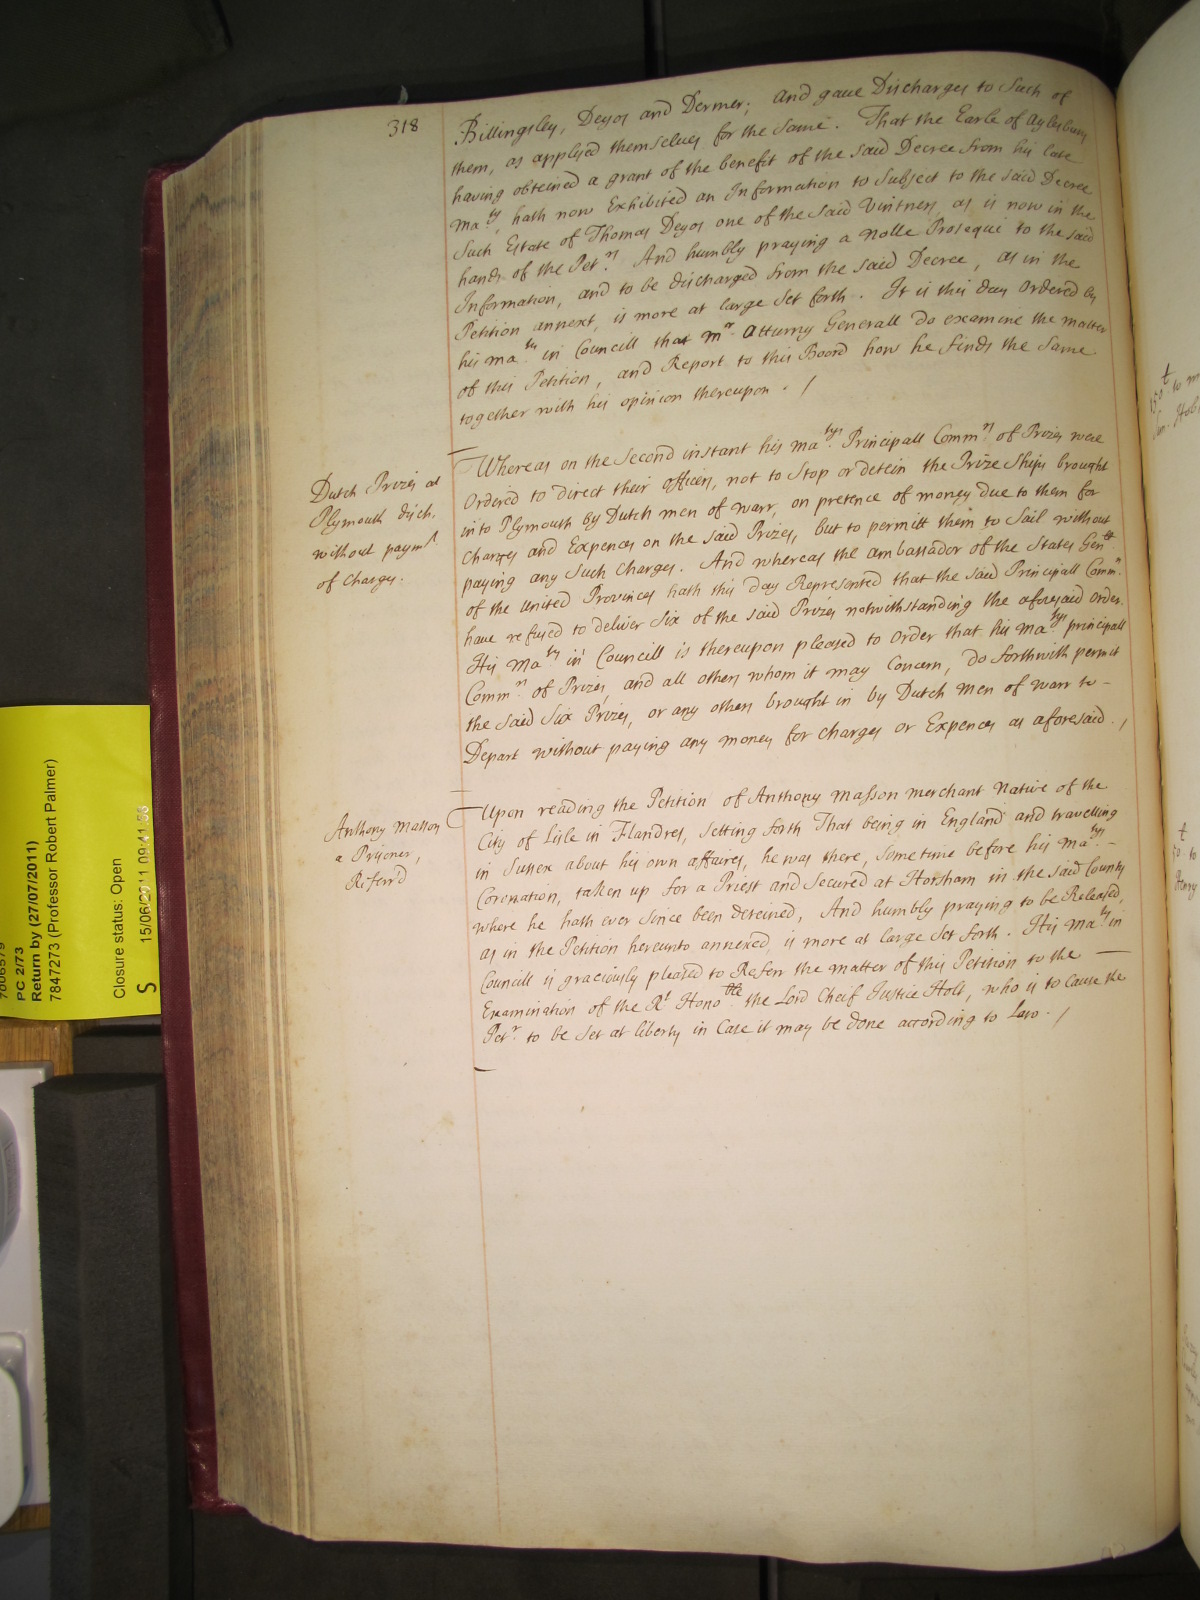 318
Billingsley, Deyos and Dermer; And gave Discharges to Such of
them, as applyed themselves for the Same. That the Earle of Aylesbury
having obteined a grant of the benefit of the said Decree from his late
Ma.ty, hath now Exhibited an Information to Subject to the said Decree
Such Estate of Thomas Deyos one of the said Vintners, as is now in the
hands of the Pet.rs And humbly praying a Nolle Prosequi to the said
Information, and to be discharged from the said Decree, as in the
Petition annext, is more at large Set forth. It is this day Ordered by
his Ma.ty in Councill that Mr. Atturny Generall do examine the matter
of this Petition, and Report to this Board how he finds the Same
together with his opinion thereupon. /
Dutch Prizes at
Plymouth disch.
without paymt.
of Charges.
Whereas on the Second instant his Ma.tys Principall Comm.rs of Prizes were
Ordered to direct their officers, not to Stop or detein the Prize Ships brought
into Plymouth by Dutch men of warr, on pretence of money due to them for
Charges and Expences on the said Prizes, but to permitt them to Sail without
paying any Such Charges. And whereas the Ambassador of the States Genll.
of the United Provinces hath this day Represented that the said Principall Comm.rs
have refused to deliver Six of the said Prizes notwithstanding the aforesaid Order.
His Ma.ty in Councill is thereupon pleased to order that his Ma.tys principall
Comm.rs of Prizes, and all others whom it may Concern, do forthwith permit
the said Six Prizes, or any others brought in by Dutch Men of warr to -
Depart without paying any money for charges or Expences as aforesaid. /
Anthony Masson
a Prisoner,
Referr'd
Upon reading the Petition of Anthony Masson merchant Native of the
City of Lisle in Flandres, Setting forth That being in England and travelling
in Sussex about his own affaires, he was there, Sometime before his Ma.tys -
Coronation, taken up for a Priest and Secured at Horsham in the said County
where he hath ever Since been deteined, And humbly praying to be Released,
as in the Petition hereunto annexed, is more at large Set forth. His Ma.ty in
Councill is graciously pleased to Referr the matter of this Petition to the —
Examination of the Rt. Hono.ble the Lord Cheif Justice Holt, who is to Cause the
Pet.r to be Set at liberty in Case it may be done according to Law. /
PC 2/73
Return by (27/07/2011)
7847273 (Professor Robert Palmer)
Closure status: Open
S 15/06/2011 09:41:56